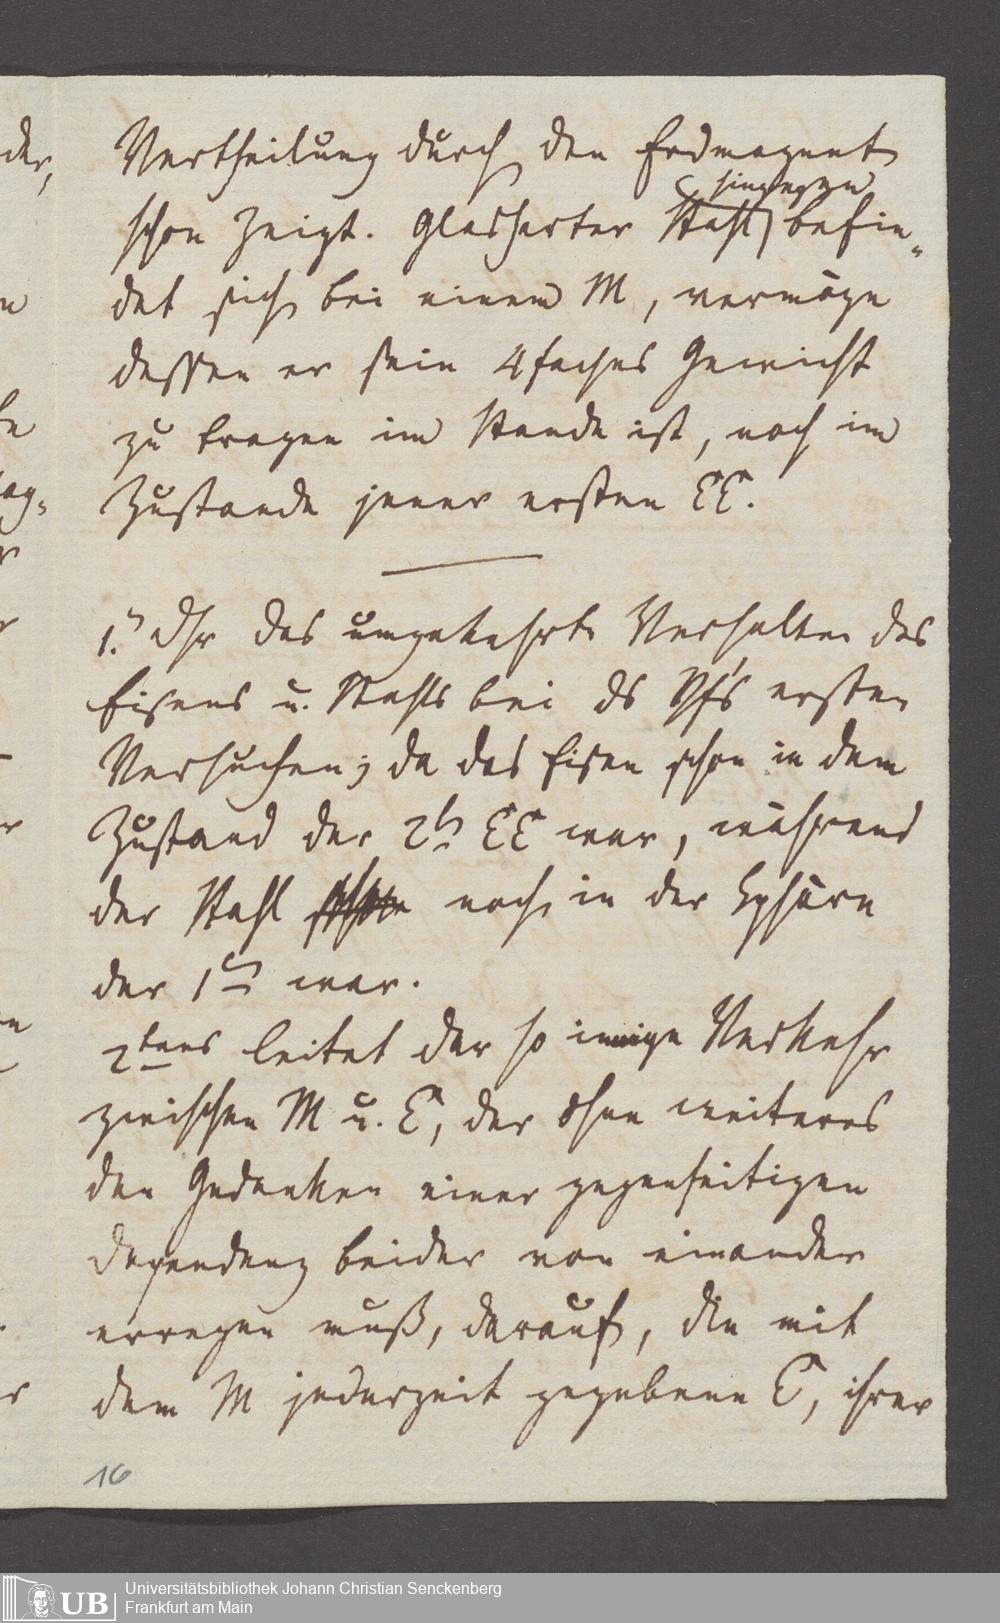 Vertheilung durch den Erdmagnet
hingegen
schon zeigt. Glasharter Stahl befin-
det sich bei einem M, vermöge
dessen er sein 4faches Gewicht
zu tragen im Stande ist, noch im
Zustande jener ersten EE.
1.) das umgekehrte Verhalten des
Eisens u. Stahls bei ds Pf's ersten
Versuchen; da das Eisen schon in dem
Zustand der 2t EE war, während
der Stahl noch in der Sphäre
der 1ten war.
2tens leitet der so innige Verkehr
zwischen M u. E, der ohne weiteres
den Gedanken einer gegenseitigen
Dependenz beider von einander
erregen muß, darauf, die mit
dem M jederzeit gegebene E, ihrer
16
der,
n
r
UB
Universitätsbibliothek Johann Christian Senckenberg
Frankfurt am Main